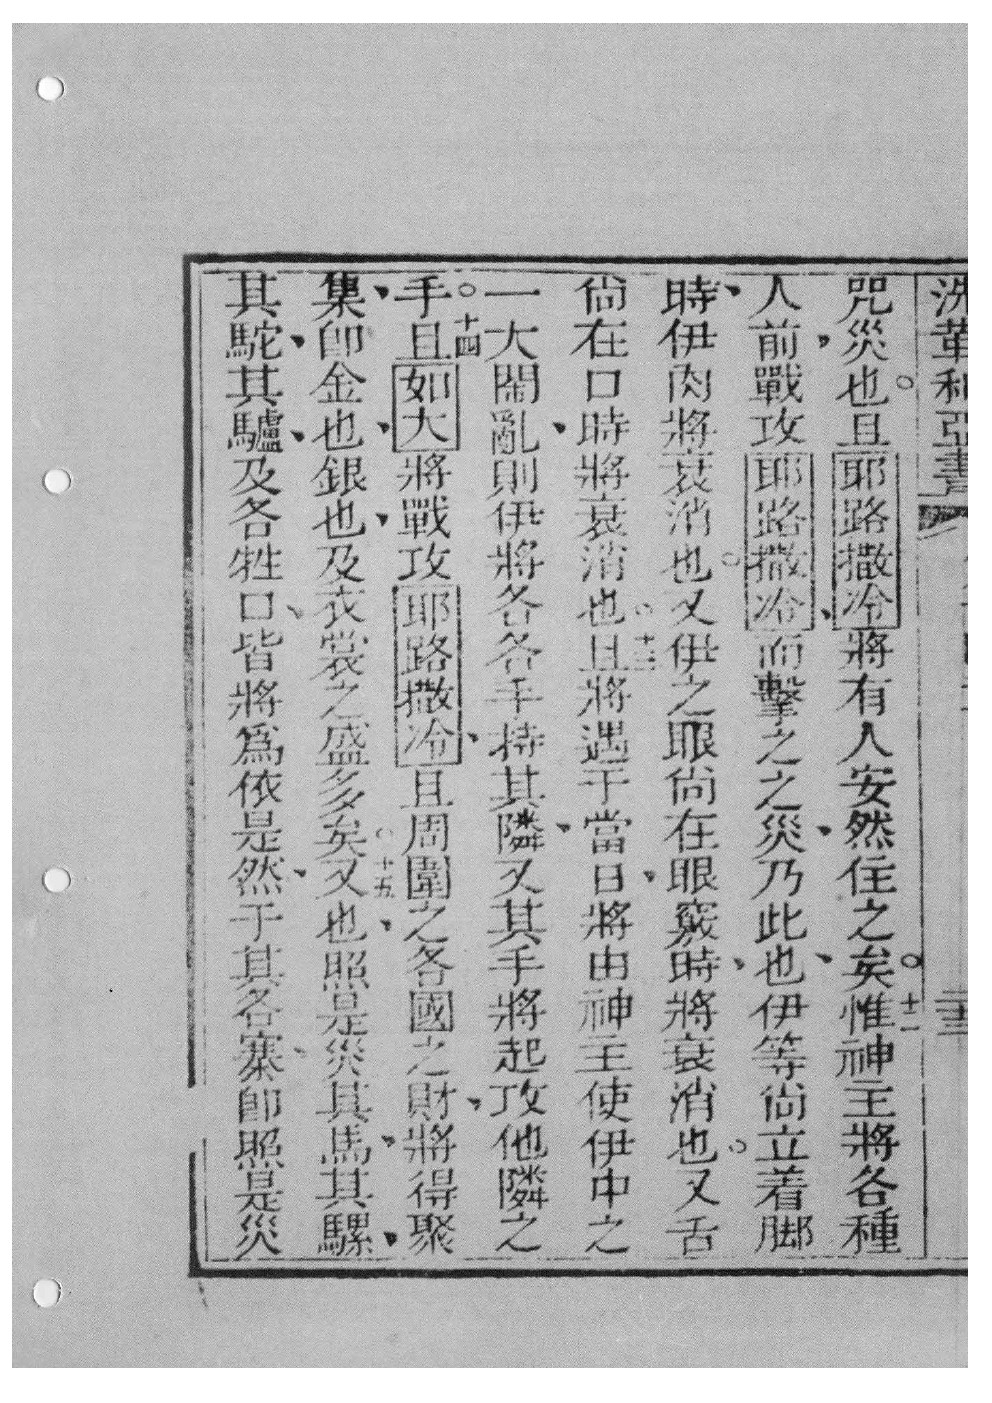 洗華利亞書
咒災也○且耶路撒冷將有人安然住之矣○十一惟神主將各種
人前戰攻耶路撒冷而擊之之災乃此也伊等尙立着脚
時伊肉將衰消也○又伊之眼尙在眼竅時將衰消也○又舌
尙在口時將衰消也○十三且將遇于當日將由神主使伊中之
一大鬧亂則伊將各各手持其隣又其手將起攻他隣之
手○十四且如大將戰攻耶路撒冷且周圍之各國之財將得聚
集卽金也銀也及衣裳之盛多矣○十五又也照是災其馬其騾
其駝其驢及各牲口皆將爲依是然于其各寨卽照是災